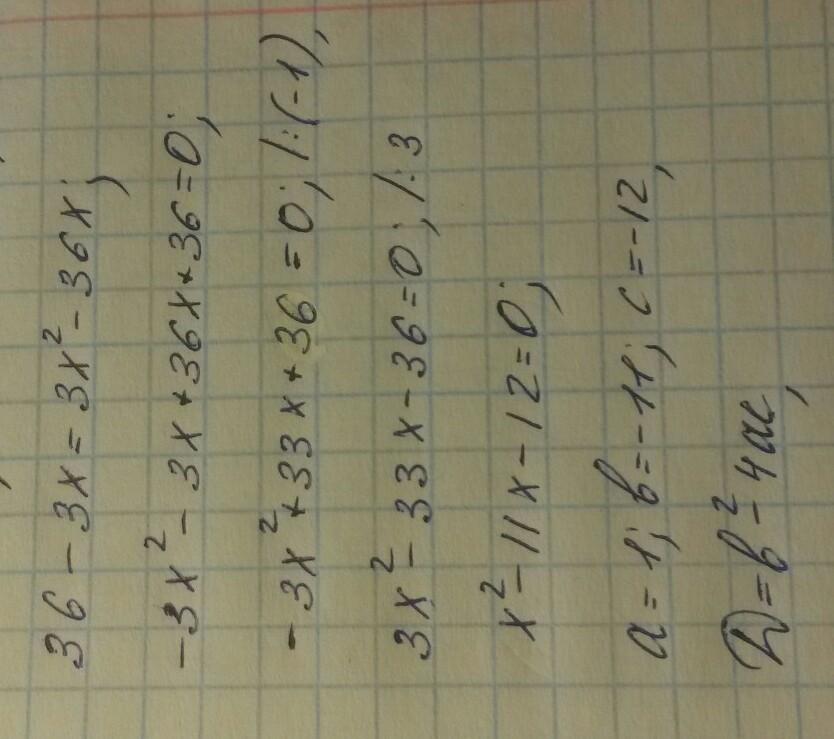 36 - 3x = 3x² - 36x;
-3x² - 3x + 36x + 36 = 0;
-3x² + 33x + 36 = 0; /:(-1),
3x² - 33x - 36 = 0; /:3
x² - 11x - 12 = 0;
a = 1; b = -11; c = -12,
D = b² - 4ac,